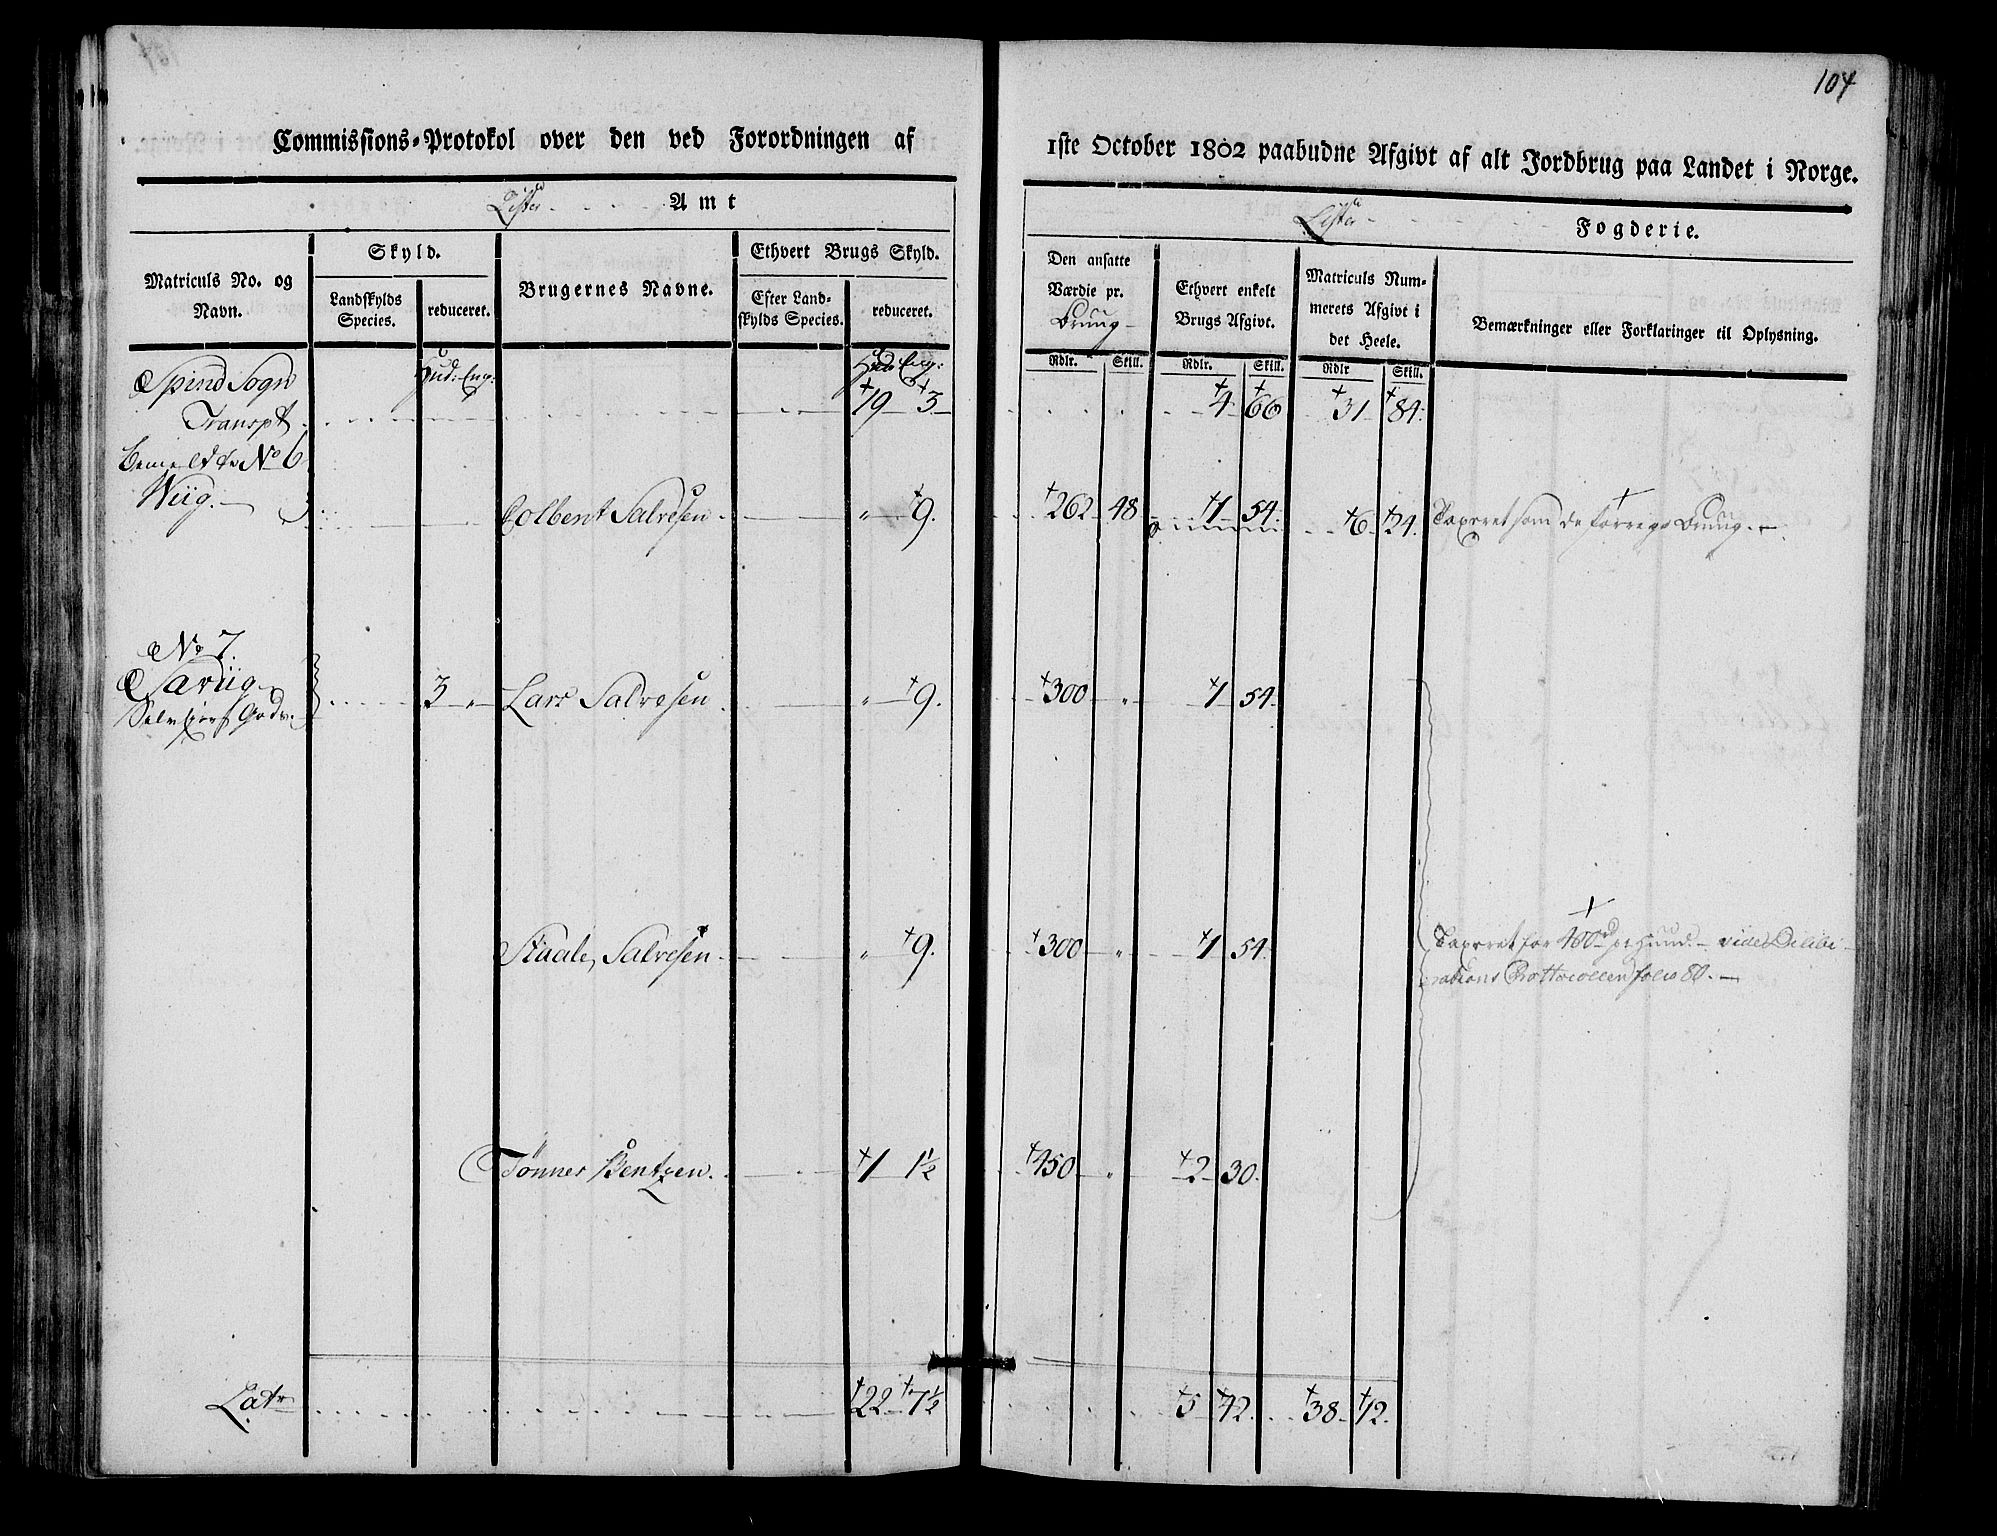 104
Commissions-Protokol over den ved Forordningen af 1ste October 1802 paabudne Afgivt af alt Jordbrug paa Landet i Norge.
Lister Amt
Lister Fogderie.
Matriculs No. og Navn.
Skyld.
Landskylds Species.
reduceret.
Brugernes Navne.
Ethvert Brugs Skyld.
Efter Landskylds Species.
reduceret.
Den ansatte Værdie pr. Bruug
Ethvert enkelt Brugs Afgivt.
Matriculs Nummerets Afgivt i det Heele.
Bemærkninger eller Forklaringer til Oplysning.
Rdlr. Skill. Rdlr. Skill. Rdlr Skill.
Spind Sogn Hud: Eng: Hud: Eng:
Transpt 19 3 4 66 31 84.
No 6
Wiig. Salvesen 9. 262 48 1 54. 6 24. Taxeret som de forrige Bruug.
No 7.
Gods. 3 " Lars Salvesen " 9. 300 " 1 54.
Staale Salvesen " 9. 300 " 1 54. Taxeret for 400 rd pr Huud. vide Delibe-
rations Prottocollen folio 80.
Tønnes Bentzen. 1 1½ 450 " 2 30.
Latr 22 7½ 5 42. 38 12.